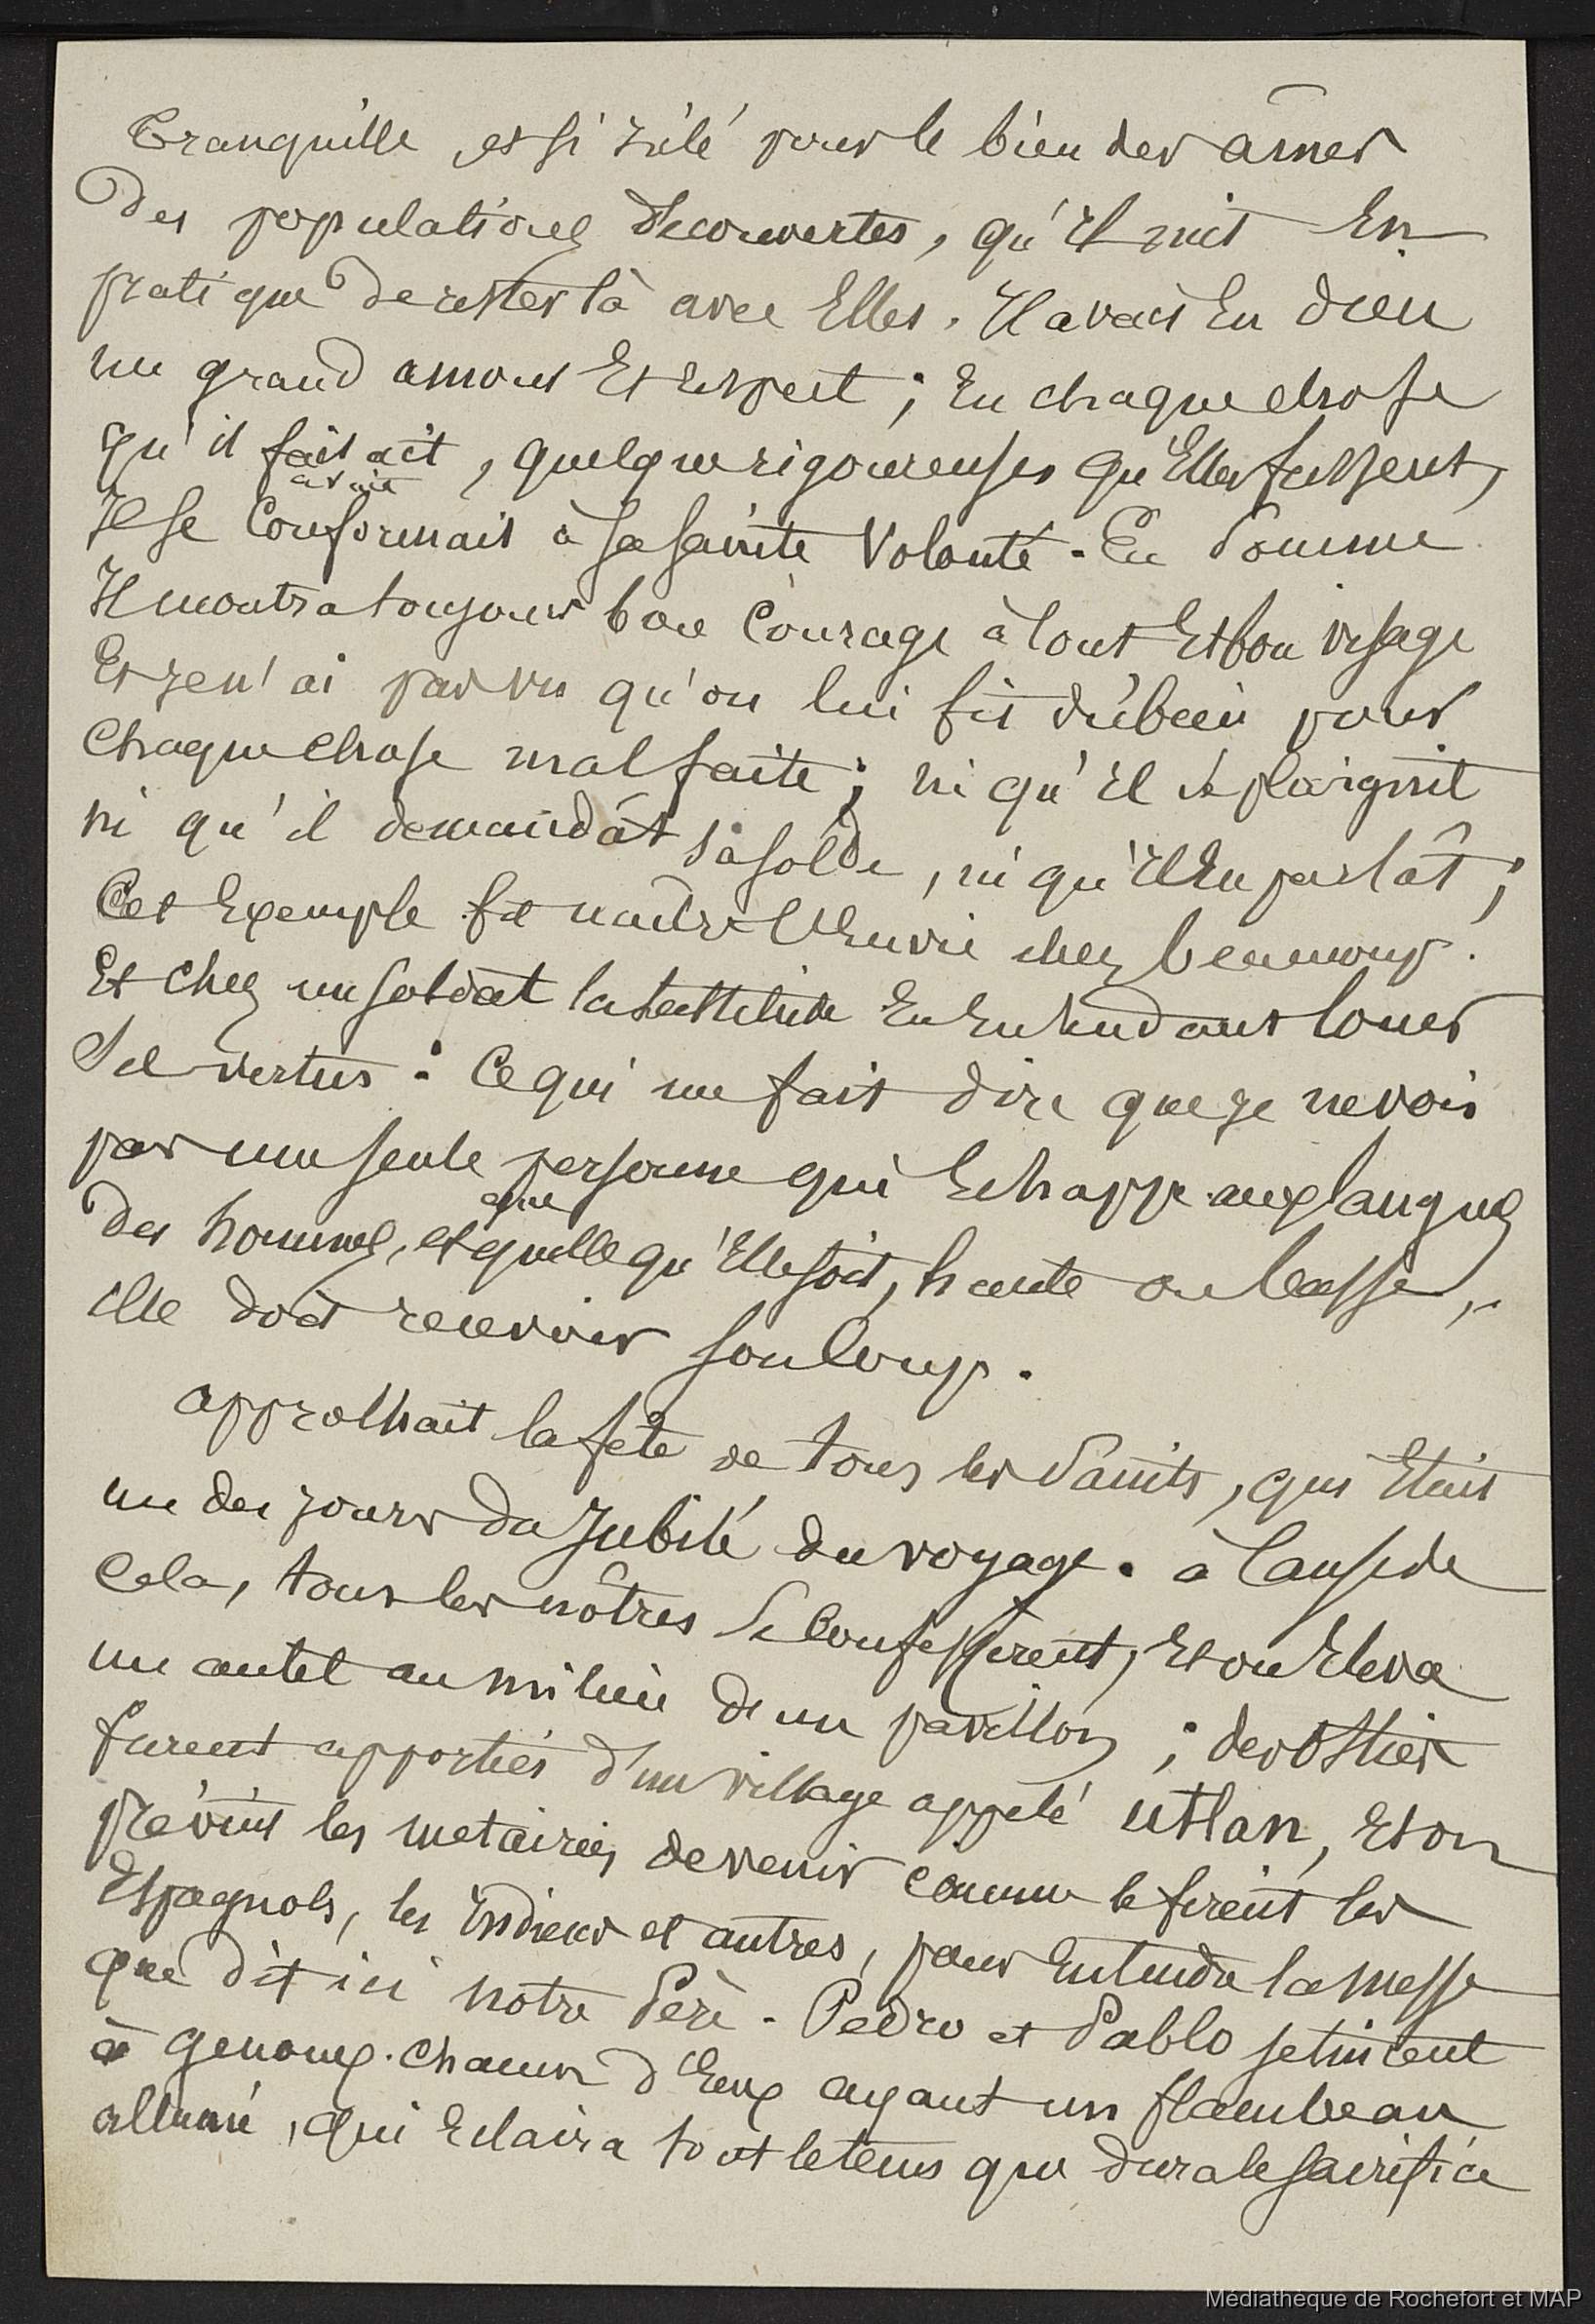 Tranquille, et si zélé pour le bien des âmes
Des populations découvertes, qu'il mit En
pratique de rester là avec Elles. Il avait En dieu
un grand amour Et respect ; En chaque chose
qu'il faisait, quelque rigoureuses qu'Elles fussent,
avait
Il se Conformait à sa sainte Volonté. En Somme
Il montra toujours bon Courage à tout Et bon visage
Et je n'ai pas vu qu'on lui fit pour
Chaque chose mal faite ; ni qu'il se plaignit
ni qu'il demandât sa solde, ni qu'il En parlât ;
Cet Exemple fit naître l'Envie chez beaucoup.
Et chez un soldat la En Entendant louer
Ses vertus : Ce qui me fait dire que je ne vois
pas une seule personne qui Echappe aux langues
que
des hommes, et quelle qu'Elle soit, haute ou basse,
elle doit recevoir son Coup.
approchait la fête de tous les Saints, qui Etait
un des jours du Jubilé du voyage. à Cause de
Cela, tous les nôtres se Confessèrent, Et on Eleva
un autel au milieu de un pavillon ; des Osties
furent apportées d'un village appelé utlan, Et on
prévint les metairies de venir comme le firent les
Espagnols, les Indiens et autres, pour Entendre la Messe
que dit ici notre Père. Pedro et Pablo se tinrent
à genoux. Chacun d'Eux ayant un flambeau
allumé, qui Eclaira tout le tems que dura le sacrifice
Médiathèque de Rochefort et MAP